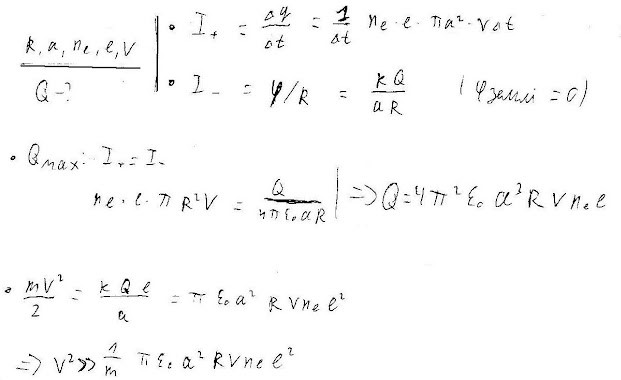 R, a, nₑ, e, V
Q - ?
• I₊ = Δq/Δt = 1/Δt nₑ · e · πa² · vΔt
• I₋ = φ/R = kQ/aR (φземлі = 0)
• Qmax: I₊ = I₋
nₑ · e · π R²V = Q/4πε₀aR | => Q = 4π²ε₀a³RVnₑe
• mV²/2 = kQe/a = πε₀a²RVnₑe²
=> V² >> 1/m πε₀a²RVnₑe²